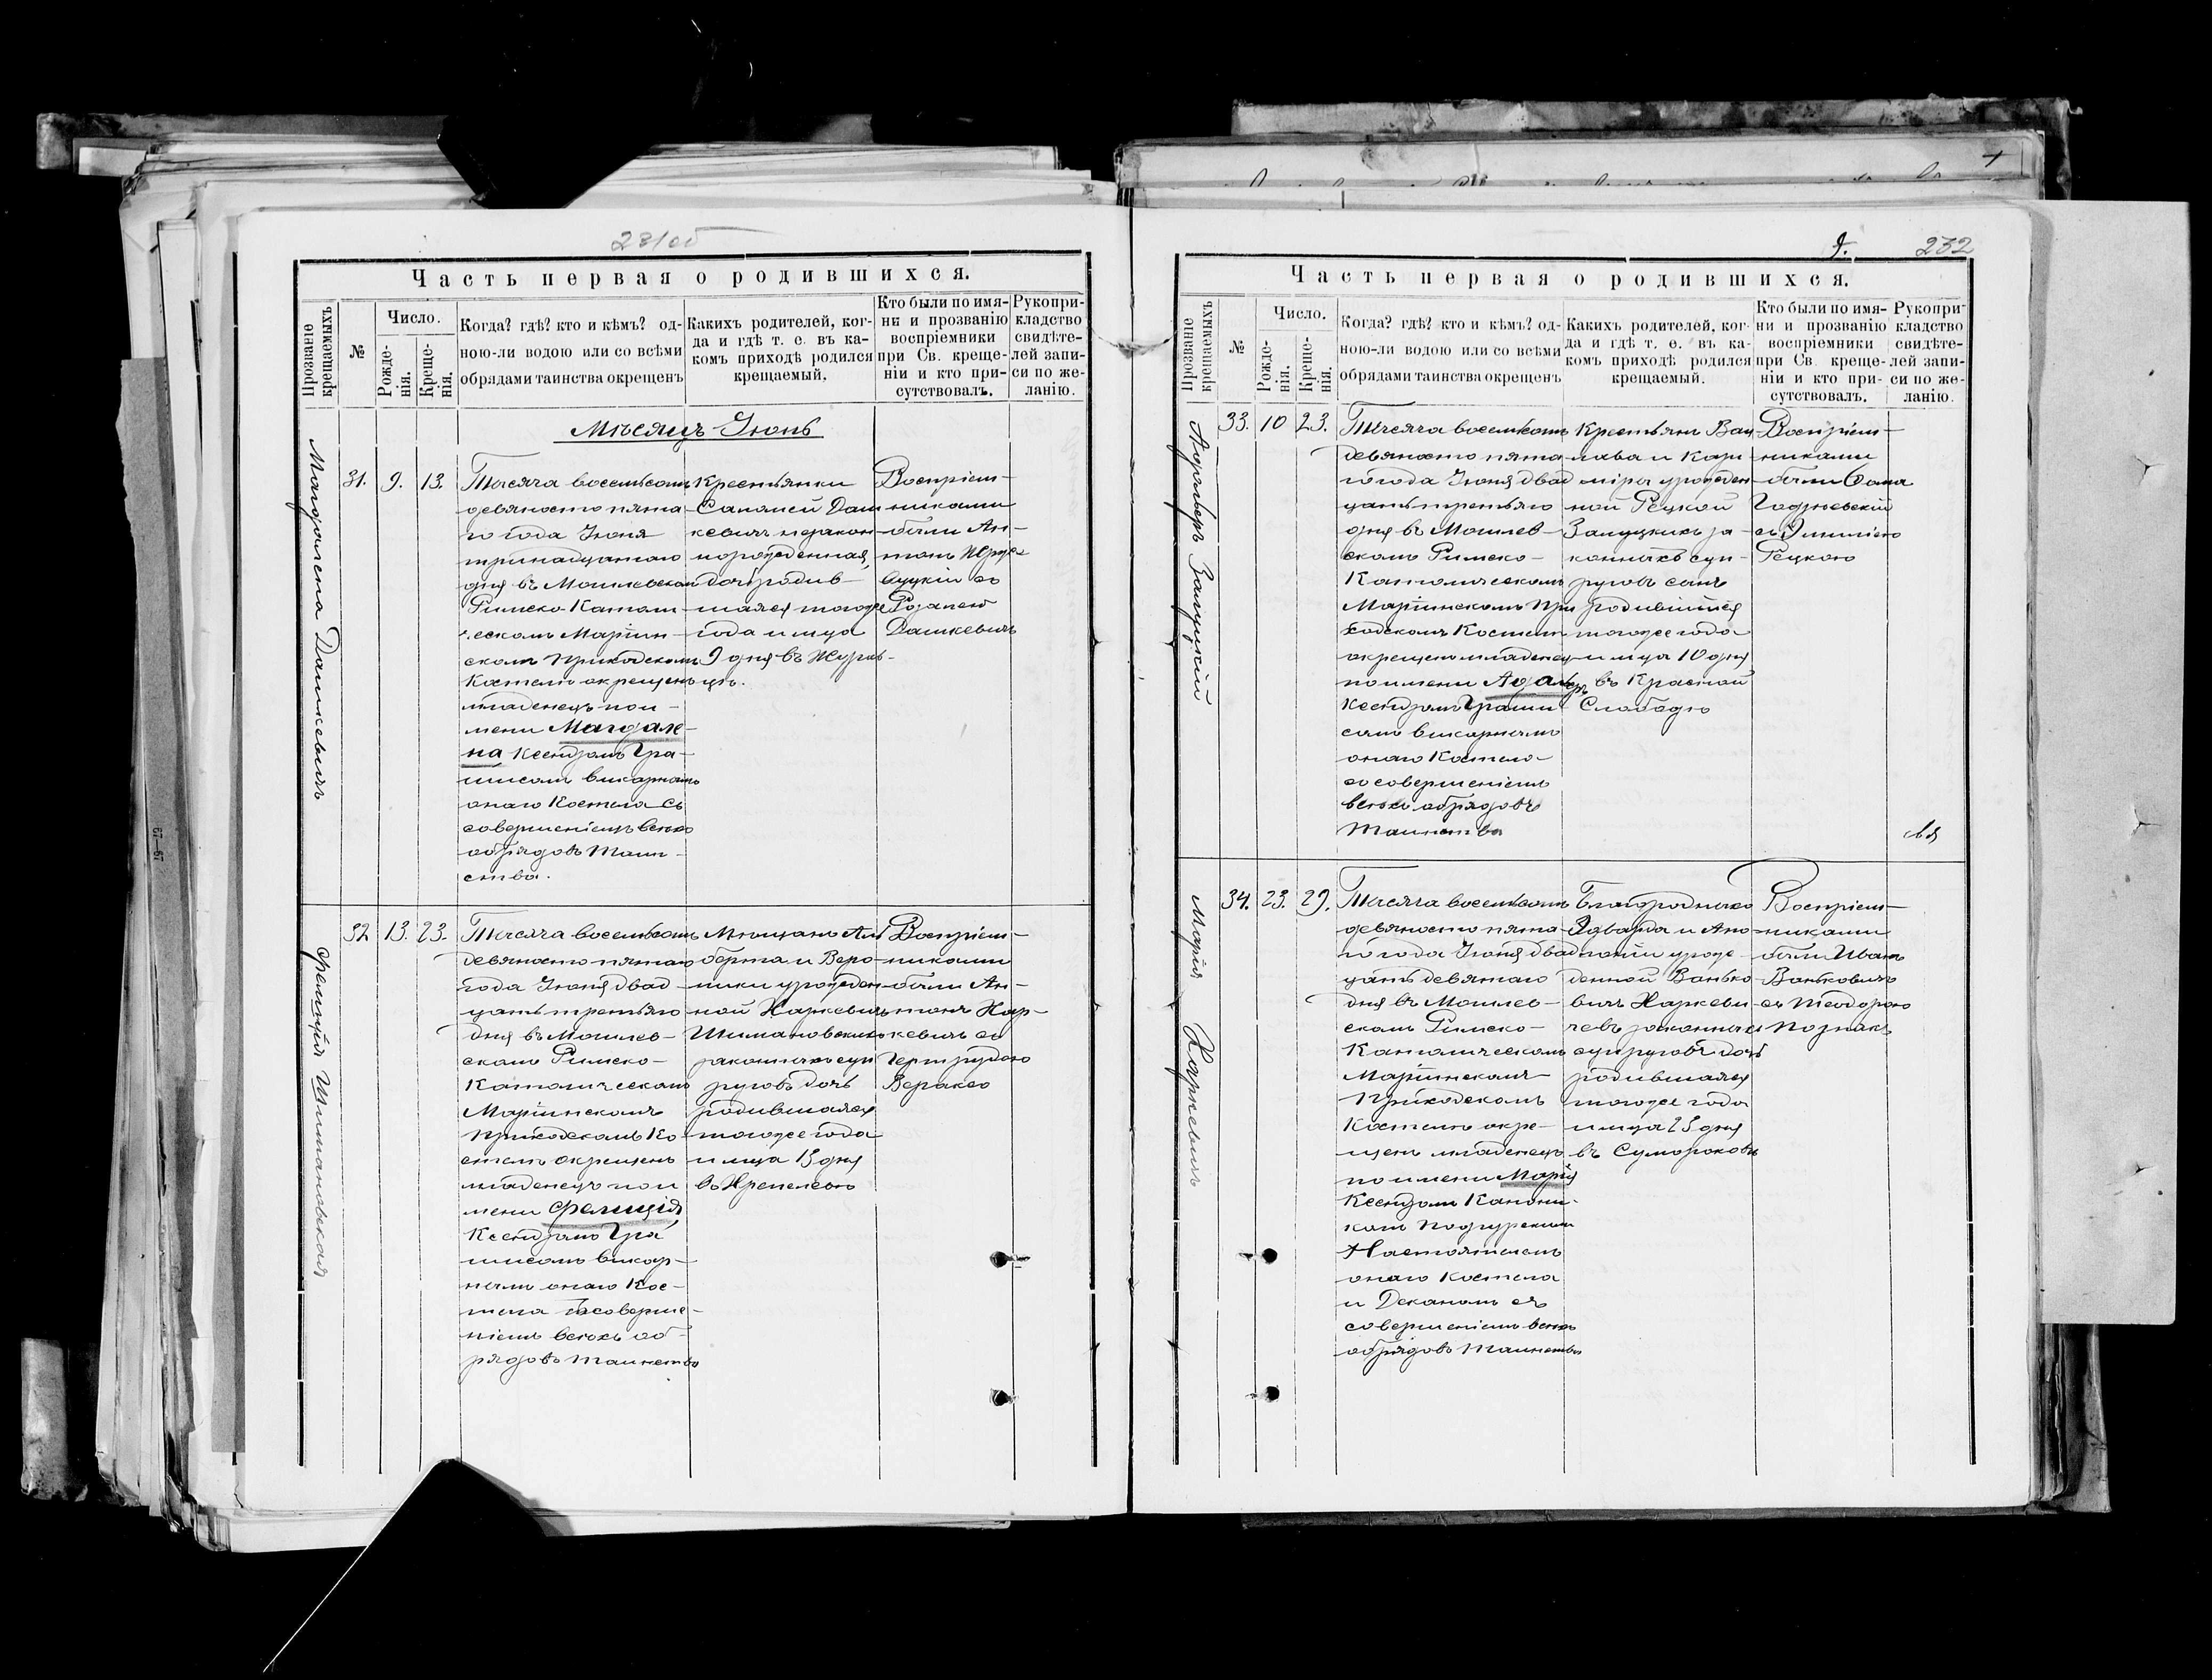 231об
Часть первая о родившихся.
Прозваніе крещаемыхъ
№
Число.
Рожде-
нія.
Креще-
нія.
Когда? гдѣ? кто и кѣмъ? од-
ною-ли водою или со всѣми
обрядами таинства окрещенъ
Какихъ родителей, ког-
да и гдѣ т. е. въ ка-
комъ приходѣ родился
крещаемый.
Кто были по имя-
ни и прозванію
воспріемники
при Св. креще-
ніи и кто при-
сутствовалъ.
Рукопри-
кладство
свидѣте-
лей запи-
си по же-
ланію.
Мѣсяцъ Іюнь
Магдалена Дашкевичъ
31. 9. 13.
Тысяча восемьсотъ
девяносто пята-
го года Іюня
тринадцатаго
дня въ Могилевском
Римско-Католи-
ческомъ Маріин-
скомъ приходскомъ
Костелѣ окрещенъ
младенецъ по и-
мени Магдале-
на Ксендзомъ Гра-
шисомъ викарнымъ
онаго Костела съ
совершеніемъ всѣхъ
обрядовъ Таин-
ства.
Крестьянки
Саломеи Даш
кевичъ незакон-
норожденная
дочь родив-
шаяся тогоже
года и мца
9 дня въ Журав-
цѣ.
Воспріем-
никами
были Ан-
тонъ
съ
Розаліею
Дашкевичъ
Фелиція Шимановская
32 13. 23.
Тысяча восемьсотъ
девяносто пятаго
года Іюня двад-
цать третьяго
дня въ Могилев-
скомъ Римско-
Католическомъ
Маріинскомъ
приходскомъ Ко-
стелѣ окрещенъ
младенецъ по и
мени Фелиція
Ксендзомъ Гра
шисомъ викар-
нымъ онаго Кос-
тела съ соверше-
ніемъ всѣхъ об-
рядовъ таинства
Мѣщанъ Аль
берта и Веро-
ники урожден-
ной Харкевичъ
Шимановскихъ
законныхъ суп
руговъ дочь
родившаяся
тогоже года
и мца 13 дня
въ
Воспріем-
никами
были Ан-
тонъ Хар-
кевичъ съ
Гертрудою
Вераксо
9. 232
Часть первая о родившихся.
Прозваніе крещаемыхъ
№
Число.
Рожде-
нія.
Креще-
нія.
Когда? гдѣ? кто и кѣмъ? од-
ною-ли водою или со всѣми
обрядами таинства окрещенъ
Какихъ родителей, ког-
да и гдѣ т. е. въ ка-
комъ приходѣ родился
крещаемый.
Кто были по имя-
ни и прозванію
воспріемники
при Св. креще-
ніи и кто при-
сутствовалъ.
Рукопри-
кладство
свидѣте-
лей запи-
си по же-
ланію.
Адольфъ Залуцкій
33. 10 23.
Тысяча восемьсотъ
девяносто пята-
го года Іюня двад
цать третьяго
дня въ Могилев-
скомъ Римско-
Католическомъ
Маріинскомъ При
ходскомъ Костелѣ
окрещенъ младенец
по имени
Ксендзомъ Граши
сомъ викарнымъ
онаго Костела
со совершеніемъ
всѣхъ обрядовъ
Таинства
Крестьянъ Вац
лава и Кази-
міры урожден-
ной Рецкой
Залуцкихъ за-
конныхъ суп-
руговъ сынъ
родившійся
тогоже года
и мца 10 дня
въ Красной
Слободѣ
Воспріем-
никами
были Ѳома
съ Эмиліею
Рецкою
Марія Харкевичъ
34. 23. 29.
Тысяча восемьсотъ
девяносто пята-
го года Іюня двад
цать девятаго
дня въ Могилев-
скомъ Римско-
Католическомъ
Маріинскомъ
Приходскомъ
Костелѣ окре-
щенъ младенецъ
по имени Марія
Ксендзомъ Канони-
комъ Подгурскимъ
Настоятелемъ
онаго Костела
и Деканомъ съ
совершеніемъ всѣхъ
обрядовъ Таинства
Благородныхъ
Эдварда и Апо-
лоніи урож-
денной Ванько-
вичъ Харкеви-
чевъ законныхъ
супруговъ дочь
родившаяся
тогоже года
и мца 23 дня
въ Сумороковѣ
Воспріем-
никами
были Иванъ
Ваньковичъ
съ Теодорою
Познякъ